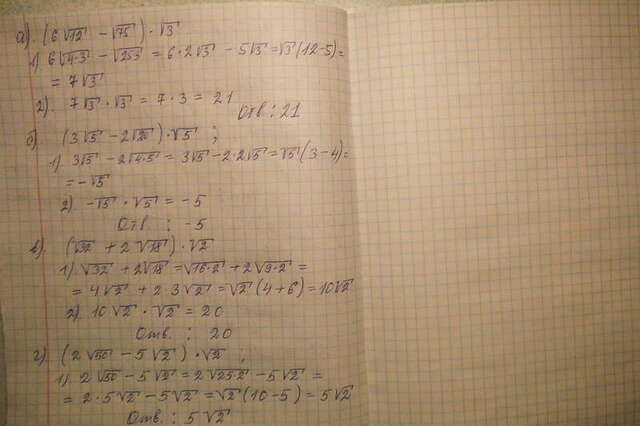 а). (6√12 - √75)·√3
1) 6√4·3 - √25·3 = 6·2√3 - 5√3 = √3(12-5) =
= 7√3
2). 7√3·√3 = 7·3 = 21
Отв: 21
б). (3√5 - 2√20)·√5 ;
1) 3√5 - 2√4·5 = 3√5 - 2·2√5 = √5(3-4) =
= -√5
2) -√5·√5 = -5
Отв : -5
в). (√32 + 2√18)·√2
1) √32 + 2√18 = √16·2 + 2√9·2 =
= 4√2 + 2·3√2 = √2(4+6) = 10√2
2). 10√2·√2 = 20
Отв. : 20
г). (2√50 - 5√2)·√2 ;
1). 2√50 - 5√2 = 2√25·2 - 5√2 =
= 2·5√2 - 5√2 = √2(10-5) = 5√2
Отв. : 5√2